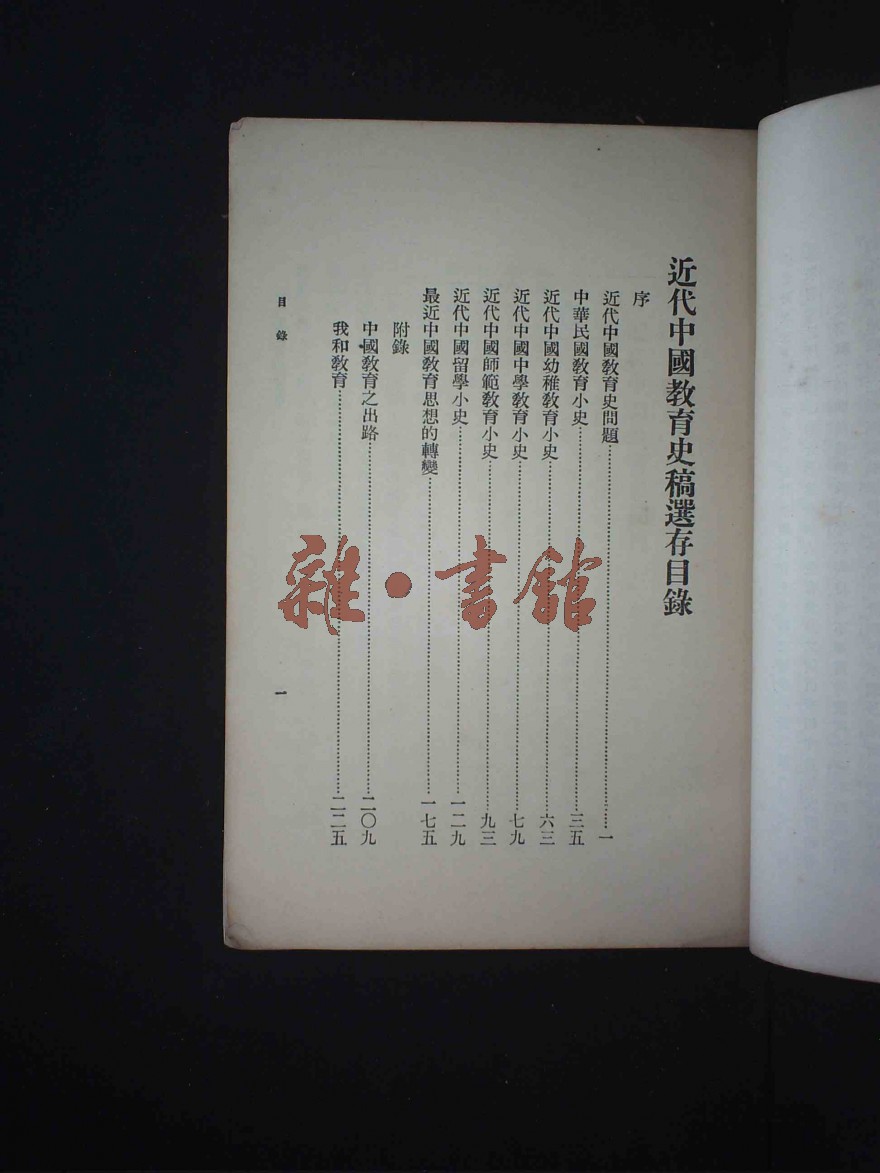 近代中國教育史稿選存目錄
序
近代中國教育史問題……一
中華民國教育小史……三五
近代中國幼稚教育小史……六三
近代中國中學教育小史……七九
近代中國師範教育小史……九三
近代中國留學小史……一二九
最近中國教育思想的轉變……一七五
附錄
中國教育之出路……二〇九
我和教育……二二五
目錄
一
雜·書館